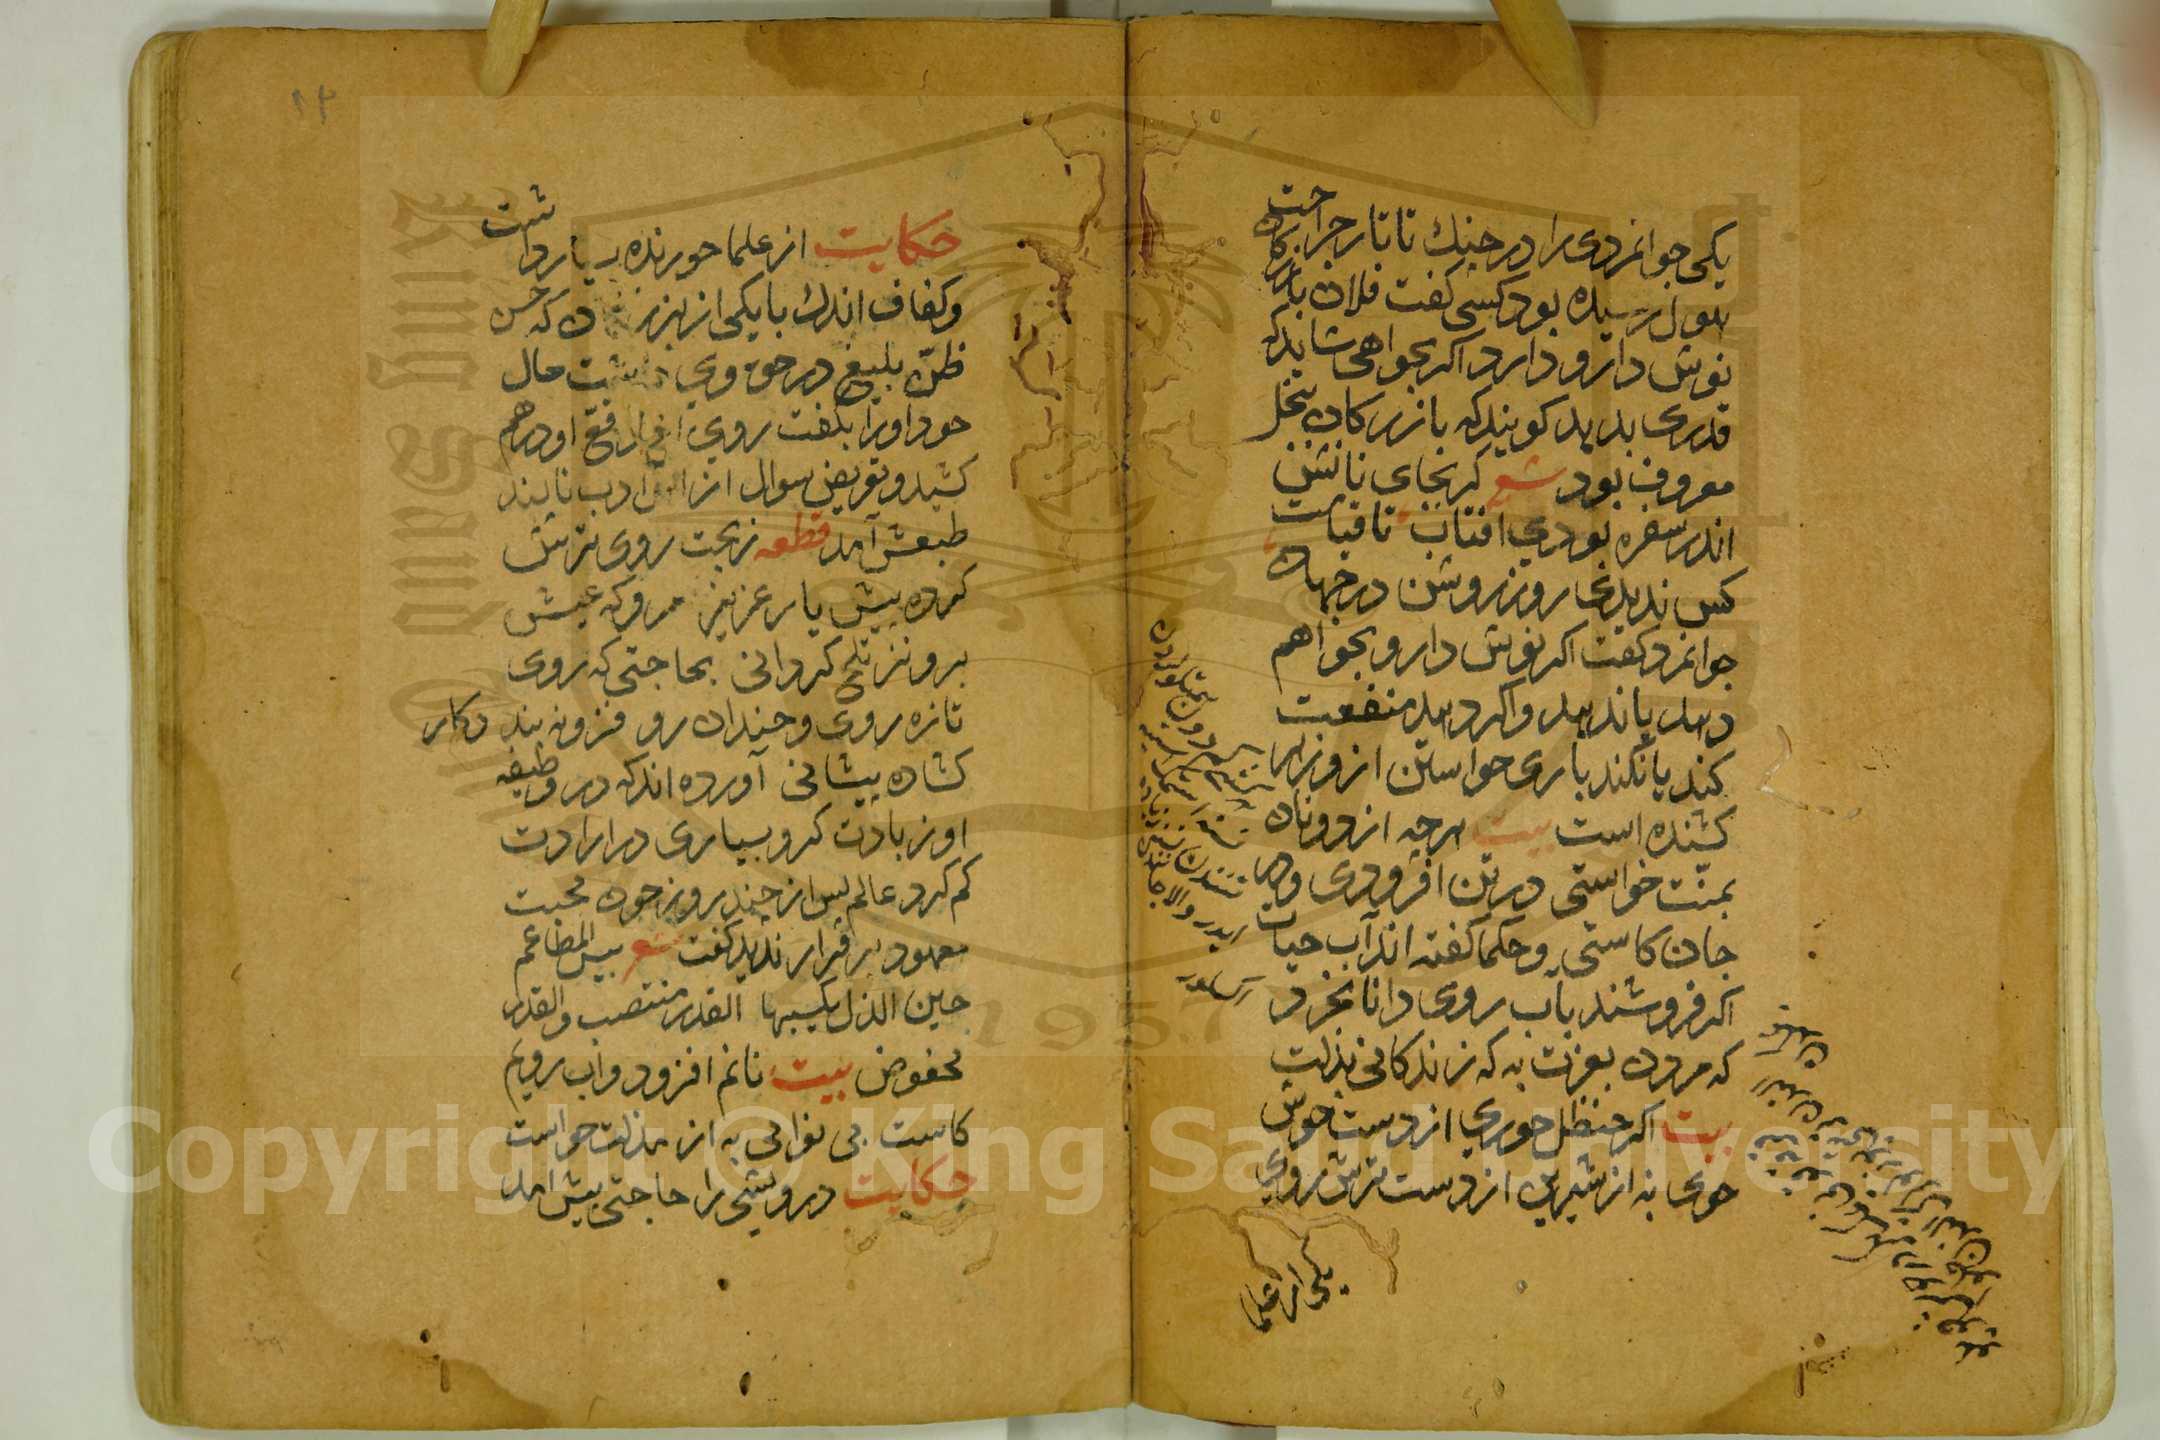 یکی جوانمردی را در جنك تاتار جراحت
هول رسیده بود کسی کفت فلان بازرکان
نوش دارو دارد اکر بخواهی شاید که
قدری بدهد کویند که بازرکان ببخل
معروف بود شعر کر بجای نانش
اندر سفره بودی افتاب تا قیامت
کس ندیدی روز روشن در جهان
جوانمرد کفت اکر نوش دارو بخواهم
دهد یا ندهد واکر دهد منفعت
کند یا نکند باری خواستن ازو زهر
کشنده است بیت هرچه از دونان
بمنت خواستی در تن افزودی واز
جان کاستی وحکما کفته اند آب حیات
اکر فروشند بآب روی دانا نخرد
که مردن بعزت به که زندکانی بذلت
بیت اکر حنظل خوری از دست خوش
خوی به از شیرین از دست ترش روی
یکی از علما
١٢
حکایت از علما خورنده بسیار داشت
وکفاف اندك با یکی از بزرکان که حسن
ظن بلیغ در حق وی داشت حال
خود اورا بکفت روی از توقع او درهم
کشید وتعریض سوال از اهل ادب ناپسند
طبعش آمد قطعه ز بخت روی ترش
کرده پیش یار عزیز مرو که عیش
برو نیز تلخ کردانی بحاجتی که روی
تازه روی وخندان رو فرو نبندد کار
کشاده پیشانی آورده اند که در وظیفه
او زیادت کرد وبسیاری در ارادت
کم کرد عالم پس از چند روز چون محبت
معهود بر قرار ندید کفت شعر بیس المطاعم
حین الذل یکسبها القدر منتصب والقدر
مخفوض بیت نانم افزود واب رویم
کاست بی نوایی به از مذلت خواست
حکایت درویشی را حاجتی پیش امد